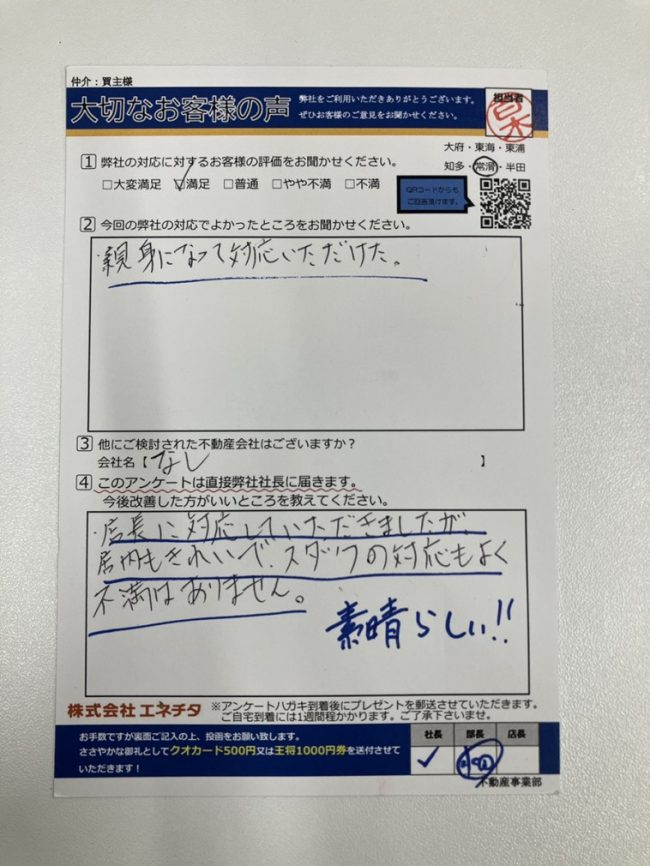 仲介：買主様
大切なお客様の声
弊社をご利用いただきありがとうございます。
ぜひお客様のご意見をお聞かせください。
担当者
大府・東海・東浦
知多・常滑・半田
1 弊社の対応に対するお客様の評価をお聞かせください。
□大変満足 □満足 □普通 □やや不満 □不満
QRコードからも
ご回答頂けます。
2 今回の弊社の対応でよかったところをお聞かせください。
・親身になって対応いただけた。
3 他にご検討された不動産会社はございますか？
会社名【なし 】
4 このアンケートは直接弊社社長に届きます。
今後改善した方がいいところを教えてください。
・店長に対応していただきましたが、
店内もきれいで、スタッフの対応もよく
不満はありません。
素晴らしい!!
株式会社エネチタ
※アンケートハガキ到着後にプレゼントを郵送させていただきます。
ご自宅到着には1週間程かかります。ご了承下さいませ。
お手数ですが裏面ご記入の上、投函をお願い致します。
ささやかな御礼としてクオカード500円又は王将1000円券を送付させて
いただきます！
社長 部長 店長
不動産事業部